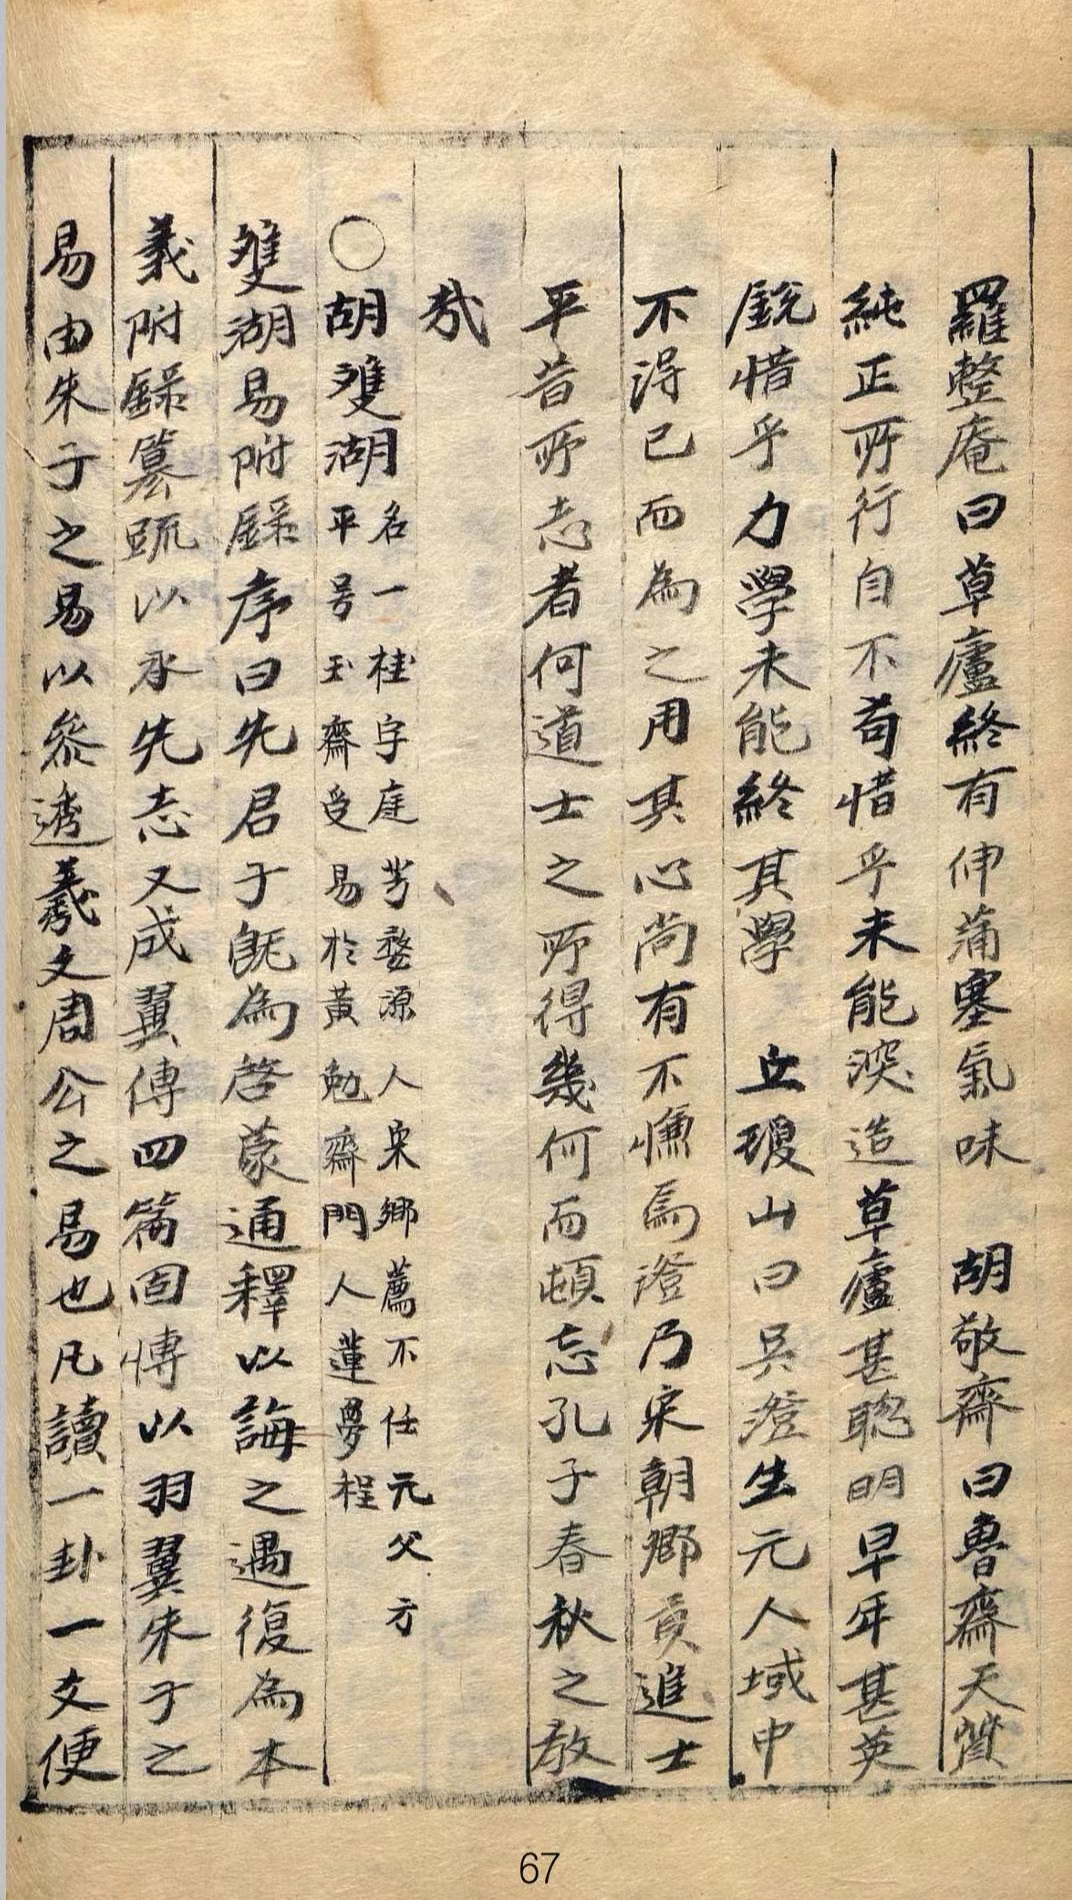 羅整庵曰草廬終有伸蒲塞氣味　胡敬齋曰魯齋天質
純正所行自不苟惜乎未能深造草廬甚聰明早年甚英
銳惜乎力學未能終其學　丘瓊山曰吳澄生元人域中
不得已而為之用其心尚有不慊焉澄乃宋朝鄉貢進士
平昔所志者何道士之所得幾何而頓忘孔子春秋之教
㦲
○胡雙湖名一桂字庭芳婺源人宋鄉薦不仕元父方
平号玉齋受易於黃勉齋門人蓮夢程
雙湖易附錄序曰先君子旣為啓蒙通釋以誨之遇復為本
義附錄纂䟽以承先志又成翼傳四篇固愽以羽翼朱子之
易由朱子之易以叅透羲文周公之易也凡讀一卦一爻便
67